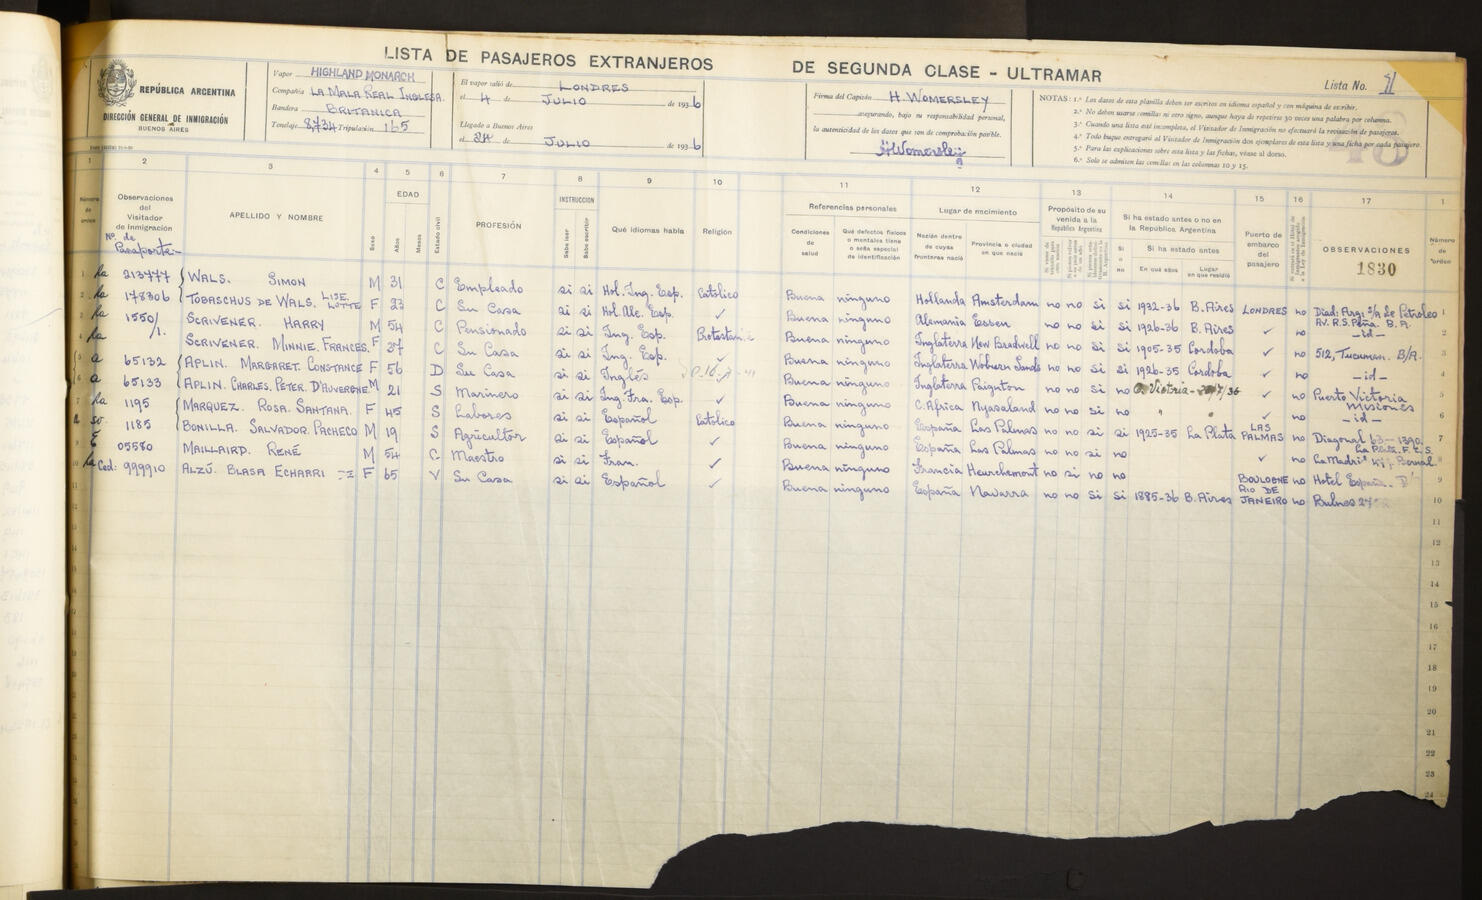 LISTA DE PASAJEROS EXTRANJEROS DE SEGUNDA CLASE - ULTRAMAR
Lista No. 11
REPÚBLICA ARGENTINA
DIRECCIÓN GENERAL DE INMIGRACIÓN
BUENOS AIRES
Vapor HIGHLAND MONARCH
Compañía LA MALA REAL INGLESA.
Bandera BRITANICA
Tonelaje 8,734 Tripulación 165
El vapor salió de LONDRES
el 4 de JULIO de 1936
Llegado a Buenos Aires
el 24 de JULIO de 1936
Firma del Capitán H. WOMERSLEY
asegurando, bajo su responsabilidad personal,
la autenticidad de los datos que son de comprobación posible.
HWomersley
NOTAS: 1.ª Los datos de esta planilla deben ser escritos en idioma español y con máquina de escribir.
2.ª No deben usarse comillas ni otro signo, aunque haya de repetirse 30 veces una palabra por columna.
3.ª Cuando una lista esté incompleta, el Visitador de Inmigración no efectuará la revisación de pasajeros.
4.ª Todo buque entregará al Visitador de Inmigración dos ejemplares de esta lista y una ficha por cada pasajero.
5.ª Para las explicaciones sobre esta lista y las fichas, véase al dorso.
6.ª Solo se admiten las comillas en las columnas 10 y 15.
48
1 2 3 4 5 6 7 8 9 10 11 12 13 14 15 16 17 1
Número de orden
Observaciones del Visitador de Inmigración
Nº. de Pasaporte
APELLIDO Y NOMBRE
Sexo
EDAD
Años
Meses
Estado civil
PROFESIÓN
INSTRUCCION
Sabe leer
Sabe escribir
Qué idiomas habla
Religión
Referencias personales
Condiciones de salud
Qué defectos físicos o mentales tiene o seña especial de identificación
Lugar de nacimiento
Nación dentro de cuyas fronteras nació
Provincia o ciudad en que nació
Propósito de su venida a la República Argentina
Si ha estado antes o no en la República Argentina
Si o no
Si ha estado antes
En qué años
Lugar en que residió
Puerto de embarco del pasajero
OBSERVACIONES
1830
Número de orden
1 213777 WALS. SIMON M 31 C Empleado si si Hol. Ing. Esp. Católico Buena ninguno Hollanda Amsterdam no no si si 1932-36 B. Aires LONDRES no Diad: Arg: S/A de Petroleo 1
AV. R.S. Peña. B.A.
2 178306 TOBASCHUS DE WALS. LISE LOTTE F 23 C Su Casa si si Hol. Ale. Esp. ✓ Buena ninguno Alemania Essen no no si si 1926-36 B. Aires ✓ no -id- 2
1550/1. SCRIVENER. HARRY M 54 C Pensionado si si Ing. Esp. Buena ninguno Inglaterra New Bradwell no no si si 1905-35 Cordoba ✓ no 512, Tucuman. B/A. 3
SCRIVENER. MINNIE. FRANCES. F 37 C Su Casa si si Ing. Esp. ✓ Buena ninguno Inglaterra Woburn Sands no no si si 1926-35 Cordoba ✓ no -id- 4
5 a 65132 APLIN. MARGARET. CONSTANCE F 56 D Su Casa si si Inglés Buena ninguno Inglaterra Paignton no no si no ✓ no Puerto Victoria 5
Misiones
6 a 65133 APLIN. CHARLES. PETER. D'AUVERGNE M 21 S Marinero si si Ing. Fra. Esp. ✓ Buena ninguno C. Africa Nyasaland no no si no ✓ no -id- 6
1195 MARQUEZ. ROSA. SANTANA. F 45 S Labores si si Español Católico Buena ninguno España Las Palmas no no si si 1925-35 La Plata LAS PALMAS no Diagonal 63 — 1390. 7
La Plata. F.C.S.
1185 BONILLA. SALVADOR. PACHECO M 19 S Agricultor si si Español ✓ Buena ninguno España Las Palmas no no si no ✓ no 8
05580 MAILLAIRD. RENÉ M 54 C Maestro si si Fran. ✓ Buena ninguno Francia no si no no BOULOGNE no Hotel España. 9
Ced: 999910 ALZÚ. BLASA ECHARRI F 65 V Su Casa si si Español ✓ Buena ninguno España Navarra no no si si 1885-36 B. Aires RIO DE JANEIRO no Bulnes 10
11
12
13
14
15
16
17
18
19
20
21
22
23
24